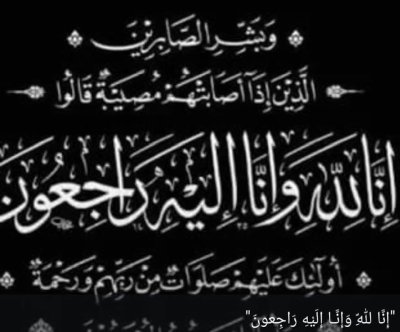 وَبَشِّرِ الصَّابِرِيْنَ
الَّذِيْنَ إِذَا أَصَابَتْهُمْ مُصِيْبَةٌ قَالُوا
إِنَّا لِلّٰهِ وَإِنَّا إِلَيْهِ رَاجِعُونَ
أُولَئِكَ عَلَيْهِمْ صَلَوَاتٌ مِنْ رَبِّهِمْ وَرَحْمَةٌ
"إِنَّا لِلّٰهِ وَإِنَّا إِلَيْهِ رَاجِعونَ"